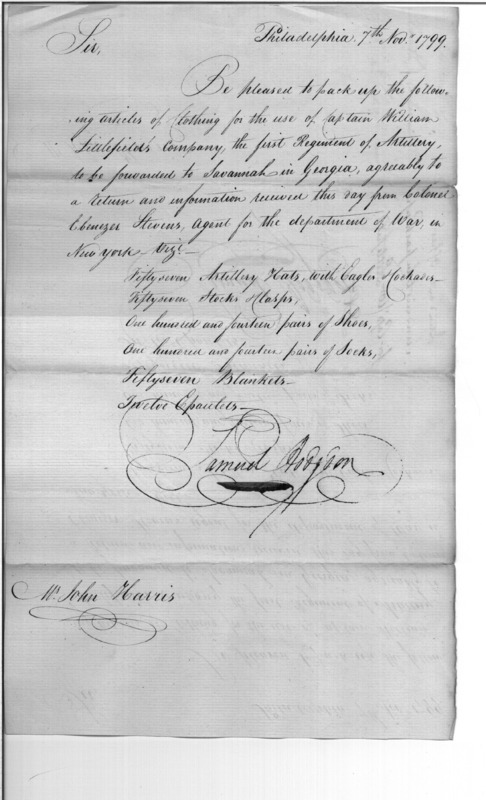 Philadelphia, 7th Nov.r 1799.
Sir,
Be pleased to pack up the follow-
ing articles of Clothing for the use of Captain William
Littlefield's Company, the first Regiment of Artillery,
to be forwarded to Savannah in Georgia, agreeably to
a return and information received this day from Colonel
Ebenezer Stevens, Agent for the department of War, in
New york Vizt—
Fiftyseven Artillery Hats, with Eagles & Cockades—
Fiftyseven Stocks & Clasps,
One hundred and fourteen pairs of Shoes,
One hundred and fourteen pairs of Socks,
Fiftyseven Blankets—
Twelve Epaulets—
Samuel Hodgdon
Mr. John Harris